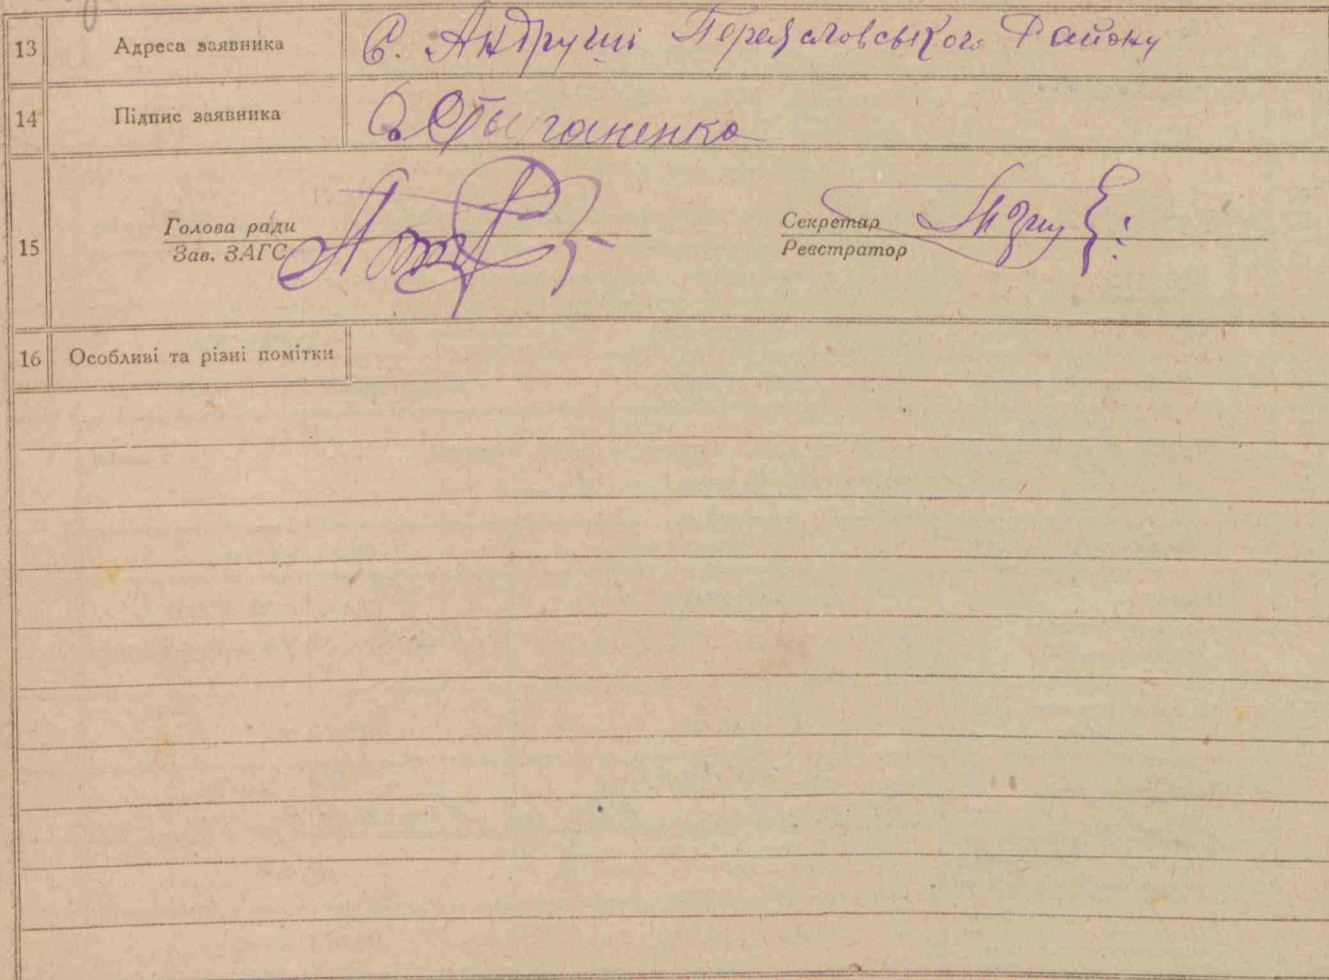 13 Адреса заявника С. Андруші Переяславського Району
14 Підпис заявника
15 Голова ради Секретар
Зав. ЗАГС Реєстратор
16 Особливі та різні помітки